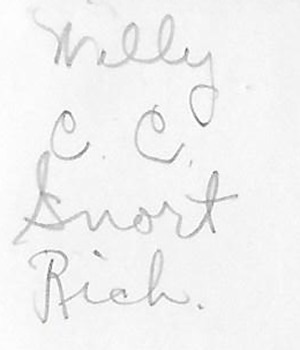 Willy
C. C.
Snort
Rich.